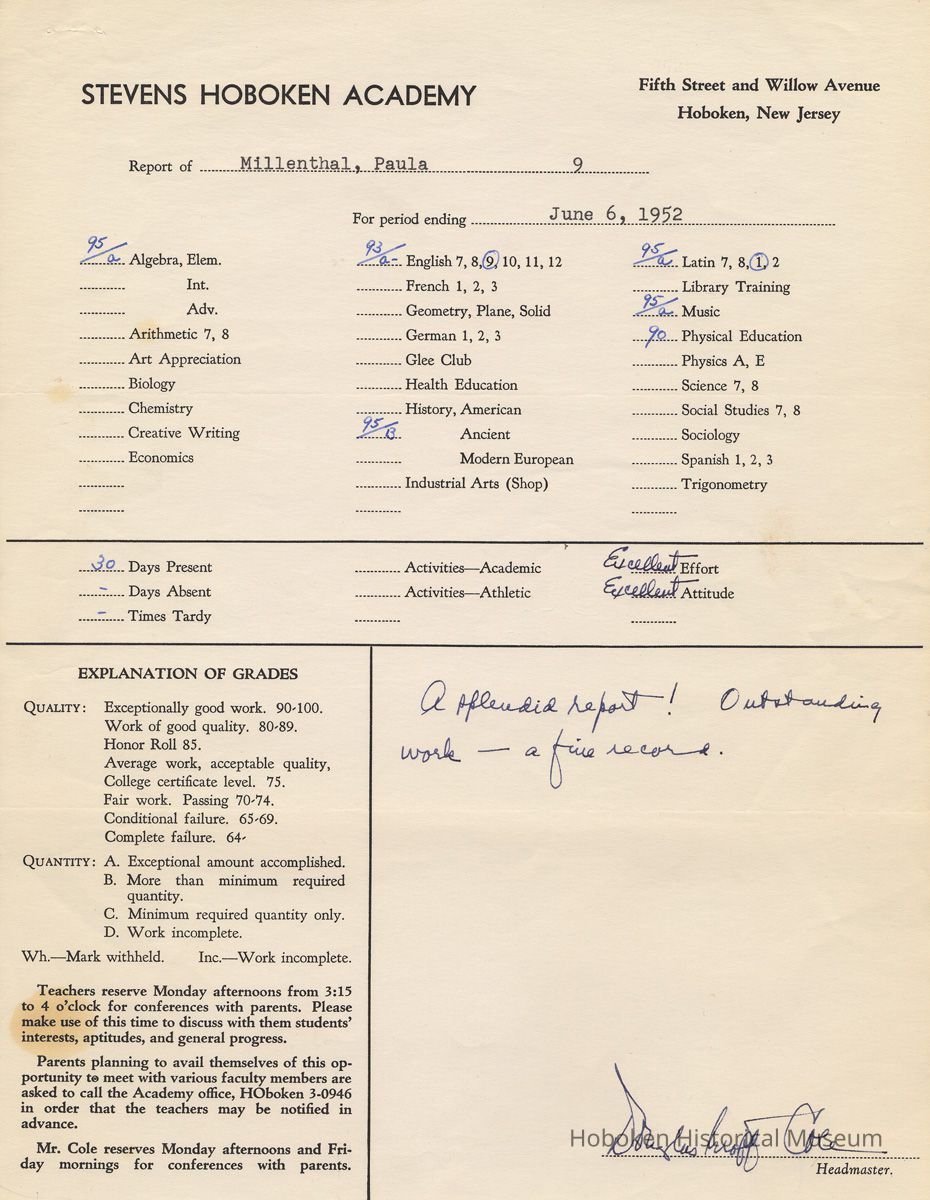 STEVENS HOBOKEN ACADEMY
Fifth Street and Willow Avenue
Hoboken, New Jersey
Report of Millenthal, Paula 9
For period ending June 6, 1952
95/a Algebra, Elem.
Int.
Adv.
Arithmetic 7, 8
Art Appreciation
Biology
Chemistry
Creative Writing
Economics
93/a- English 7, 8, 9, 10, 11, 12
French 1, 2, 3
Geometry, Plane, Solid
German 1, 2, 3
Glee Club
Health Education
History, American
95/B Ancient
Modern European
Industrial Arts (Shop)
95/a Latin 7, 8, 1, 2
Library Training
95/a Music
90 Physical Education
Physics A, E
Science 7, 8
Social Studies 7, 8
Sociology
Spanish 1, 2, 3
Trigonometry
30 Days Present
- Days Absent
- Times Tardy
Activities—Academic
Activities—Athletic
Excellent Effort
Excellent Attitude
EXPLANATION OF GRADES
QUALITY: Exceptionally good work. 90-100.
Work of good quality. 80-89.
Honor Roll 85.
Average work, acceptable quality,
College certificate level. 75.
Fair work. Passing 70-74.
Conditional failure. 65-69.
Complete failure. 64-
QUANTITY: A. Exceptional amount accomplished.
B. More than minimum required
quantity.
C. Minimum required quantity only.
D. Work incomplete.
Wh.—Mark withheld. Inc.—Work incomplete.
Teachers reserve Monday afternoons from 3:15
to 4 o'clock for conferences with parents. Please
make use of this time to discuss with them students'
interests, aptitudes, and general progress.
Parents planning to avail themselves of this op-
portunity to meet with various faculty members are
asked to call the Academy office, HOboken 3-0946
in order that the teachers may be notified in
advance.
Mr. Cole reserves Monday afternoons and Fri-
day mornings for conferences with parents.
A splendid report! Outstanding
work — a fine record.
Douglas Cole
Hoboken Historical Museum
Headmaster.